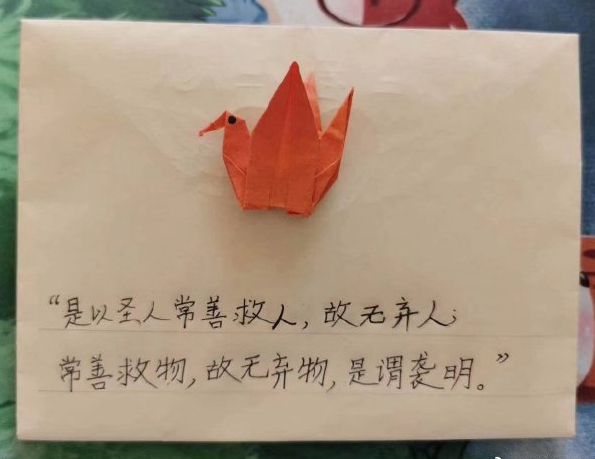 “是以圣人常善救人，故无弃人；
常善救物，故无弃物，是谓袭明。”